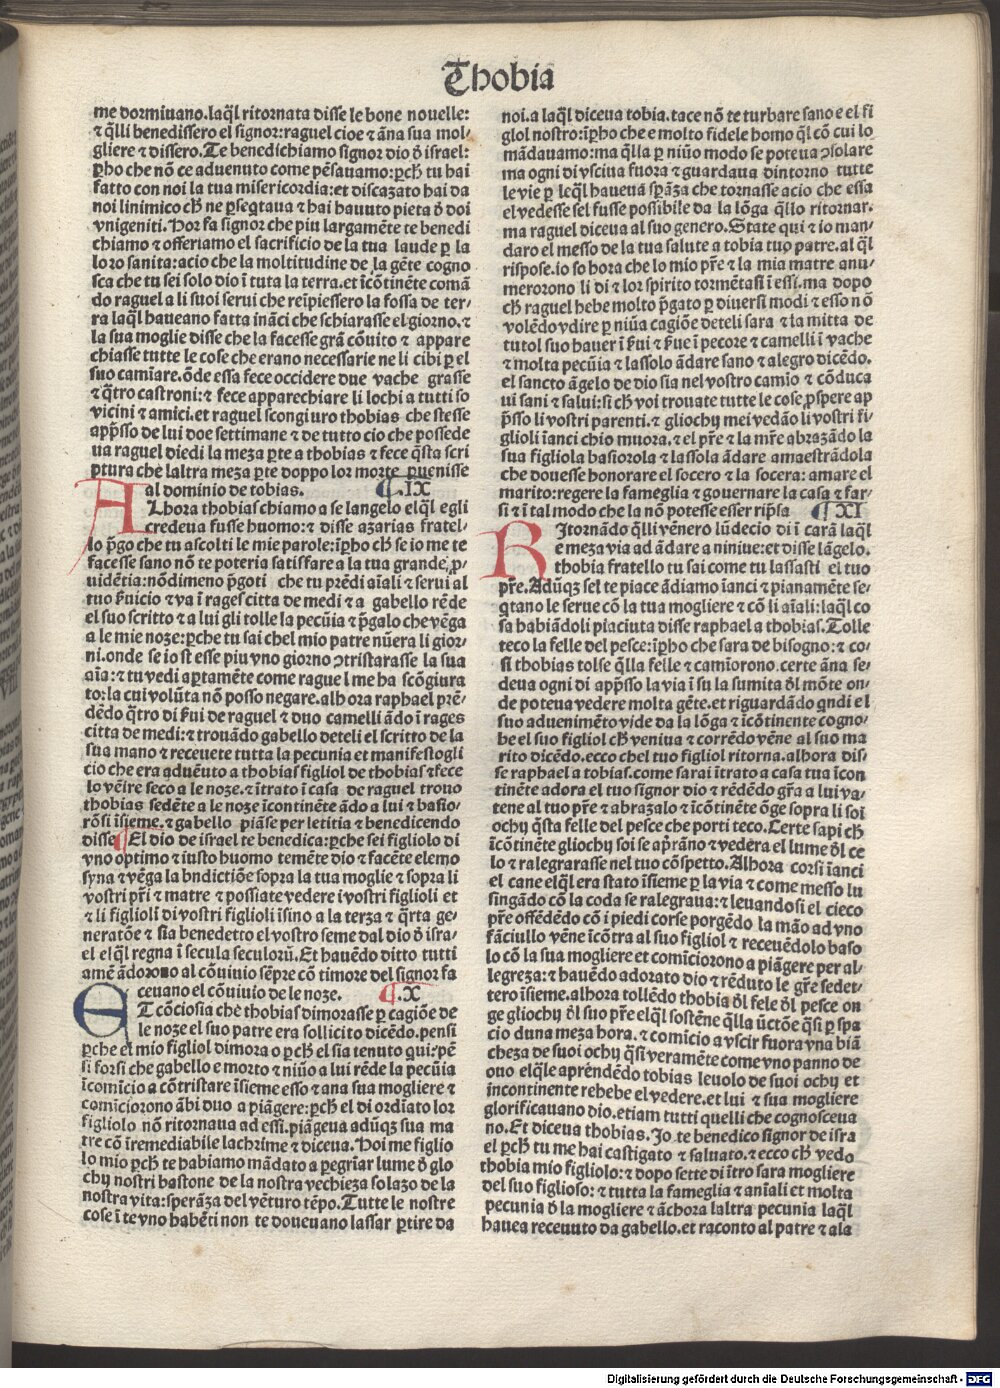 Thobia
me dormiuano.laq̃l ritornata disse le bone nouelle:
⁊ q̃lli benedissero el signor:raguel cioe ⁊ ãna sua mol/
gliere ⁊ dissero.Te benedichiamo signor dio ð israel:
ꝑho che nõ ce aduenuto come pẽsauamo:ꝑch̃ tu hai
fatto con noi la tua misericordia:et discazato hai da
noi linimico ch̃ ne ꝑseq̃taua ⁊ hai hauuto pieta ð doi
vnigeniti.Hor fa signor che piu largamẽte te benedi
chiamo ⁊ offeriamo el sacrificio de la tua laude ꝑ la
loro sanita:acio che la moltitudine de la gẽte cogno
sca che tu sei solo dio ĩ tuta la terra.et ĩcõtinẽte comã
do raguel a li suoi serui che reĩpiessero la fossa de ter/
ra laq̃l haueano fatta inãci che schiarasse el giorno.⁊
la sua moglie disse che la facesse grã cõuito ⁊ appare
chiasse tutte le cose che erano necessarie ne li cibi ꝑ el
suo camĩare.õde essa fece occidere due vache grasse
⁊ q̃tro castroni:⁊ fece apparechiare li lochi a tutti so
vicini ⁊ amici.et raguel scongiuro thobias che stesse
app̃sso de lui doe settimane ⁊ de tutto cio che possede
ua raguel diedi la meza ꝑte a thobias ⁊ fece q̃sta scri
ptura che laltra meza ꝑte doppo lor morte ꝑuenisse
al dominio de tobias. ¶.IX
ALhora thobias chiamo a se langelo elq̃l egli
credeua fusse huomo:⁊ disse azarias fratel/
lo p̃go che tu ascolti le mie parole:ĩꝑho ch̃ se io me te
facesse sano nõ te poteria satisfare a la tua grande ꝓ/
uidẽtia:nõdimeno p̃goti che tu prẽdi aĩali ⁊ serui al
tuo ẜuicio ⁊ va ĩ rages citta de medi ⁊ a gabello rẽde
el suo scritto ⁊ a lui gli tolle la pecũia ⁊ p̃galo che vẽga
a le mie noze:ꝑche tu sai chel mio patre nũera li gior/
ni.onde se io st esse piu vno giorno ꝯtristarasse la sua
aĩa:⁊ tu vedi aꝑtamẽte come raguel me ha scõgiura
to:la cui volũta nõ posso negare.alhora raphael prẽ/
dẽdo q̃tro di ẜui de raguel ⁊ duo camelli ãdo ĩ rages
citta de medi:⁊ trouãdo gabello deteli el scritto de la
sua mano ⁊ receuete tutta la pecunia et manifestogli
cio che era aduẽuto a thobias figliol de thobias ⁊ fece
lo vẽire seco a le noze.⁊ ĩtrato ĩ casa de raguel trouo
thobias sedẽte a le noze ĩcontinẽte ãdo a lui ⁊ basio/
rõsi ĩsieme.⁊ gabello piãse per letitia ⁊ benedicendo
disse ¶ El dio de israel te benedica:ꝑche sei figliolo di
vno optimo ⁊ iusto huomo temẽte dio ⁊ facẽte elemo
syna ⁊ vẽga la bn̄dictiõe sopra la tua moglie ⁊ sopra li
vostri pr̃i ⁊ matre ⁊ possiate vedere i vostri figlioli et
⁊ li figlioli di vostri figlioli ĩsino a la terza ⁊ q̃rta ge/
neratõe ⁊ sia benedetto el vostro seme dal dio ð isra/
el elq̃l regna ĩ secula seculorũ.Et hauẽdo ditto tutti
amẽ ãdorono al cõuiuio sẽpre cõ timore del signor fa
ceuano el cõuiuio de le noze. ¶.X
ET cõciosia che thobias dimorasse ꝑ cagiõe de
le noze el suo patre era sollicito dicẽdo.pensi
ꝑche el mio figliol dimora o ꝑch̃ el sia tenuto qui:⁊pẽ
si forsi che gabello e morto ⁊ niũo a lui rẽde la pecũia
ĩcomĩcio a cõtristare ĩsieme esso ⁊ ana sua mogliere ⁊
comĩciorono ãbi duo a piãgere:ꝑch̃ el di ordiato lor
figliolo nõ ritornaua ad essi.piãgeua adũq̃ sua ma
tre cõ ĩremediabile lachrime ⁊ diceua.Hoi me figlio
lo mio ꝑch̃ te habiamo mãdato a pegriar lume ð glo
chy nostri bastone de la nostra vechieza solazo de la
nostra vita:sperãza del vẽturo tẽpo.Tutte le nostre
cose ĩ te vno habẽti non te doueuano lassar ꝑtire da
noi.a laq̃l diceua tobia.tace nõ te turbare sano e el fi
gliol nostro:ĩꝑho che e molto fidele homo q̃l cõ cui lo
mãdauamo:ma q̃lla ꝑ niũo modo se poteua ꝯsolare
ma ogni di vsciua fuora ⁊ guardaua dintorno tutte
le vie ꝑ leq̃l haueua sꝑãza che tornasse acio che essa
el vedesse sel fusse possibile da la lõga q̃llo ritornar.
ma raguel diceua al suo genero.State qui ⁊ io man/
daro el messo de la tua salute a tobia tuo patre.al q̃l
rispose.io so hora che lo mio pr̃e ⁊ la mia matre anu/
merorono li di ⁊ lor spirito tormẽtasi ĩ essi.ma dopo
ch̃ raguel hebe molto p̃gato ꝑ diuersi modi ⁊ esso nõ
volẽdo vdire ꝑ niũa cagiõe deteli sara ⁊ la mitta de
tutol suo hauer ĩ ẜui ⁊ ẜue ĩ pecore ⁊ camelli ĩ vache
⁊ molta pecũia ⁊ lassolo ãdare sano ⁊ alegro dicẽdo.
el sancto ãgelo de dio sia nel vostro camĩo ⁊ cõduca
ui sani ⁊ salui:si ch̃ voi trouate tutte le cose ꝓspere ap
p̃sso li vostri parenti.⁊ gliochy mei vedão li vostri fi/
glioli ĩanci chio muora.⁊ el pr̃e ⁊ la mr̃e abrazãdo la
sua figliola basiorola ⁊ lassola ãdare amaestrãdola
che douesse honorare el socero ⁊ la socera: amare el
marito:regere la fameglia ⁊ gouernare la casa ⁊ far/
si ⁊ ĩ tal modo che la nõ potesse esser rip̃sa ¶ XI
RItornãdo q̃lli vẽnero lũdecio di ĩ carã laq̃l
e meza via ad ãdare a niniue:et disse lãgelo.
thobia fratello tu sai come tu lassasti el tuo
pr̃e.Adũq̃ sel te piace ãdiamo ĩanci ⁊ pianamẽte se/
q̃tano le serue cõ la tua mogliere ⁊ cõ li aĩali:laq̃l co
sa habiãdoli piaciuta disse raphael a thobias.Tolle
teco la felle del pesce:ĩꝑho che sara de bisogno:⁊ co/
si thobias tolse q̃lla felle ⁊ camĩorono.certe ãna se/
deua ogni di app̃sso la via ĩ su la sumita ðl mõte on/
de poteua vedere molta gẽte.et riguardãdo q̃ndi el
suo aduenimẽto vide da la lõga ⁊ ĩcõtinente cogno/
be el suo figliol ch̃ veniua ⁊ corrẽdo vẽne al suo ma
rito dicẽdo.ecco chel tuo figliol ritorna.alhora dis/
se raphael a tobias.come sarai ĩtrato a casa tua ĩcon
tinẽte adora el tuo signor dio ⁊ rẽdẽdo gr̃a a lui va/
tene al tuo pr̃e ⁊ abrazalo ⁊ ĩcõtinẽte õge sopra li soi
ochy q̃sta felle del pesce che porti teco.Certe sapi ch̃
ĩcõtinẽte gliochy soi se aprirãno ⁊ vedera el lume ðl ce
lo ⁊ ralegrarasse nel tuo cõspetto.Alhora corsi ĩanci
el cane elq̃l era stato ĩsieme ꝑ la via ⁊ come messo lu
singãdo cõ la coda se ralegraua:⁊ leuandosi el cieco
pr̃e offẽdẽdo cõ i piedi corse porgẽdo la mão ad vno
fãciullo vẽne ĩcõtra al suo figliol ⁊ receuẽdolo baso
lo cõ la sua mogliere et comĩciorono a piãgere per al/
legreza:⁊ hauẽdo adorato dio ⁊ rẽduto le gr̃e sedet/
tero ĩsieme.alhora tollẽdo thobia ðl fele ðl pesce on
ge gliochy ðl suo pr̃e elq̃l sostẽne q̃lla ũctõe q̃si ꝑ spa
cio duna meza hora.⁊ comĩcio a vscir fuora vna biã
cheza de suoi ochy q̃si veramẽte come vno panno de
ouo elq̃le aprẽdẽdo tobias leuolo de suoi ochy et
incontinente rehebe el vedere.et lui ⁊ sua mogliere
glorificauano dio.etiam tutti quelli che cognosceua
no.Et diceua thobias.Io te benedico signor de isra
el ꝑch̃ tu me hai castigato ⁊ saluato.⁊ ecco ch̃ vedo
thobia mio figliolo:⁊ dopo sette di ĩtro sara mogliere
del suo figlioso:⁊ tutta la fameglia ⁊ anĩali et molta
pecunia ð la mogliere ⁊ ãchora laltra pecunia laq̃l
hauea receuuto da gabello.et raconto al patre ⁊ ala
Digitalisierung gefördert durch die Deutsche Forschungsgemeinschaft - DFG